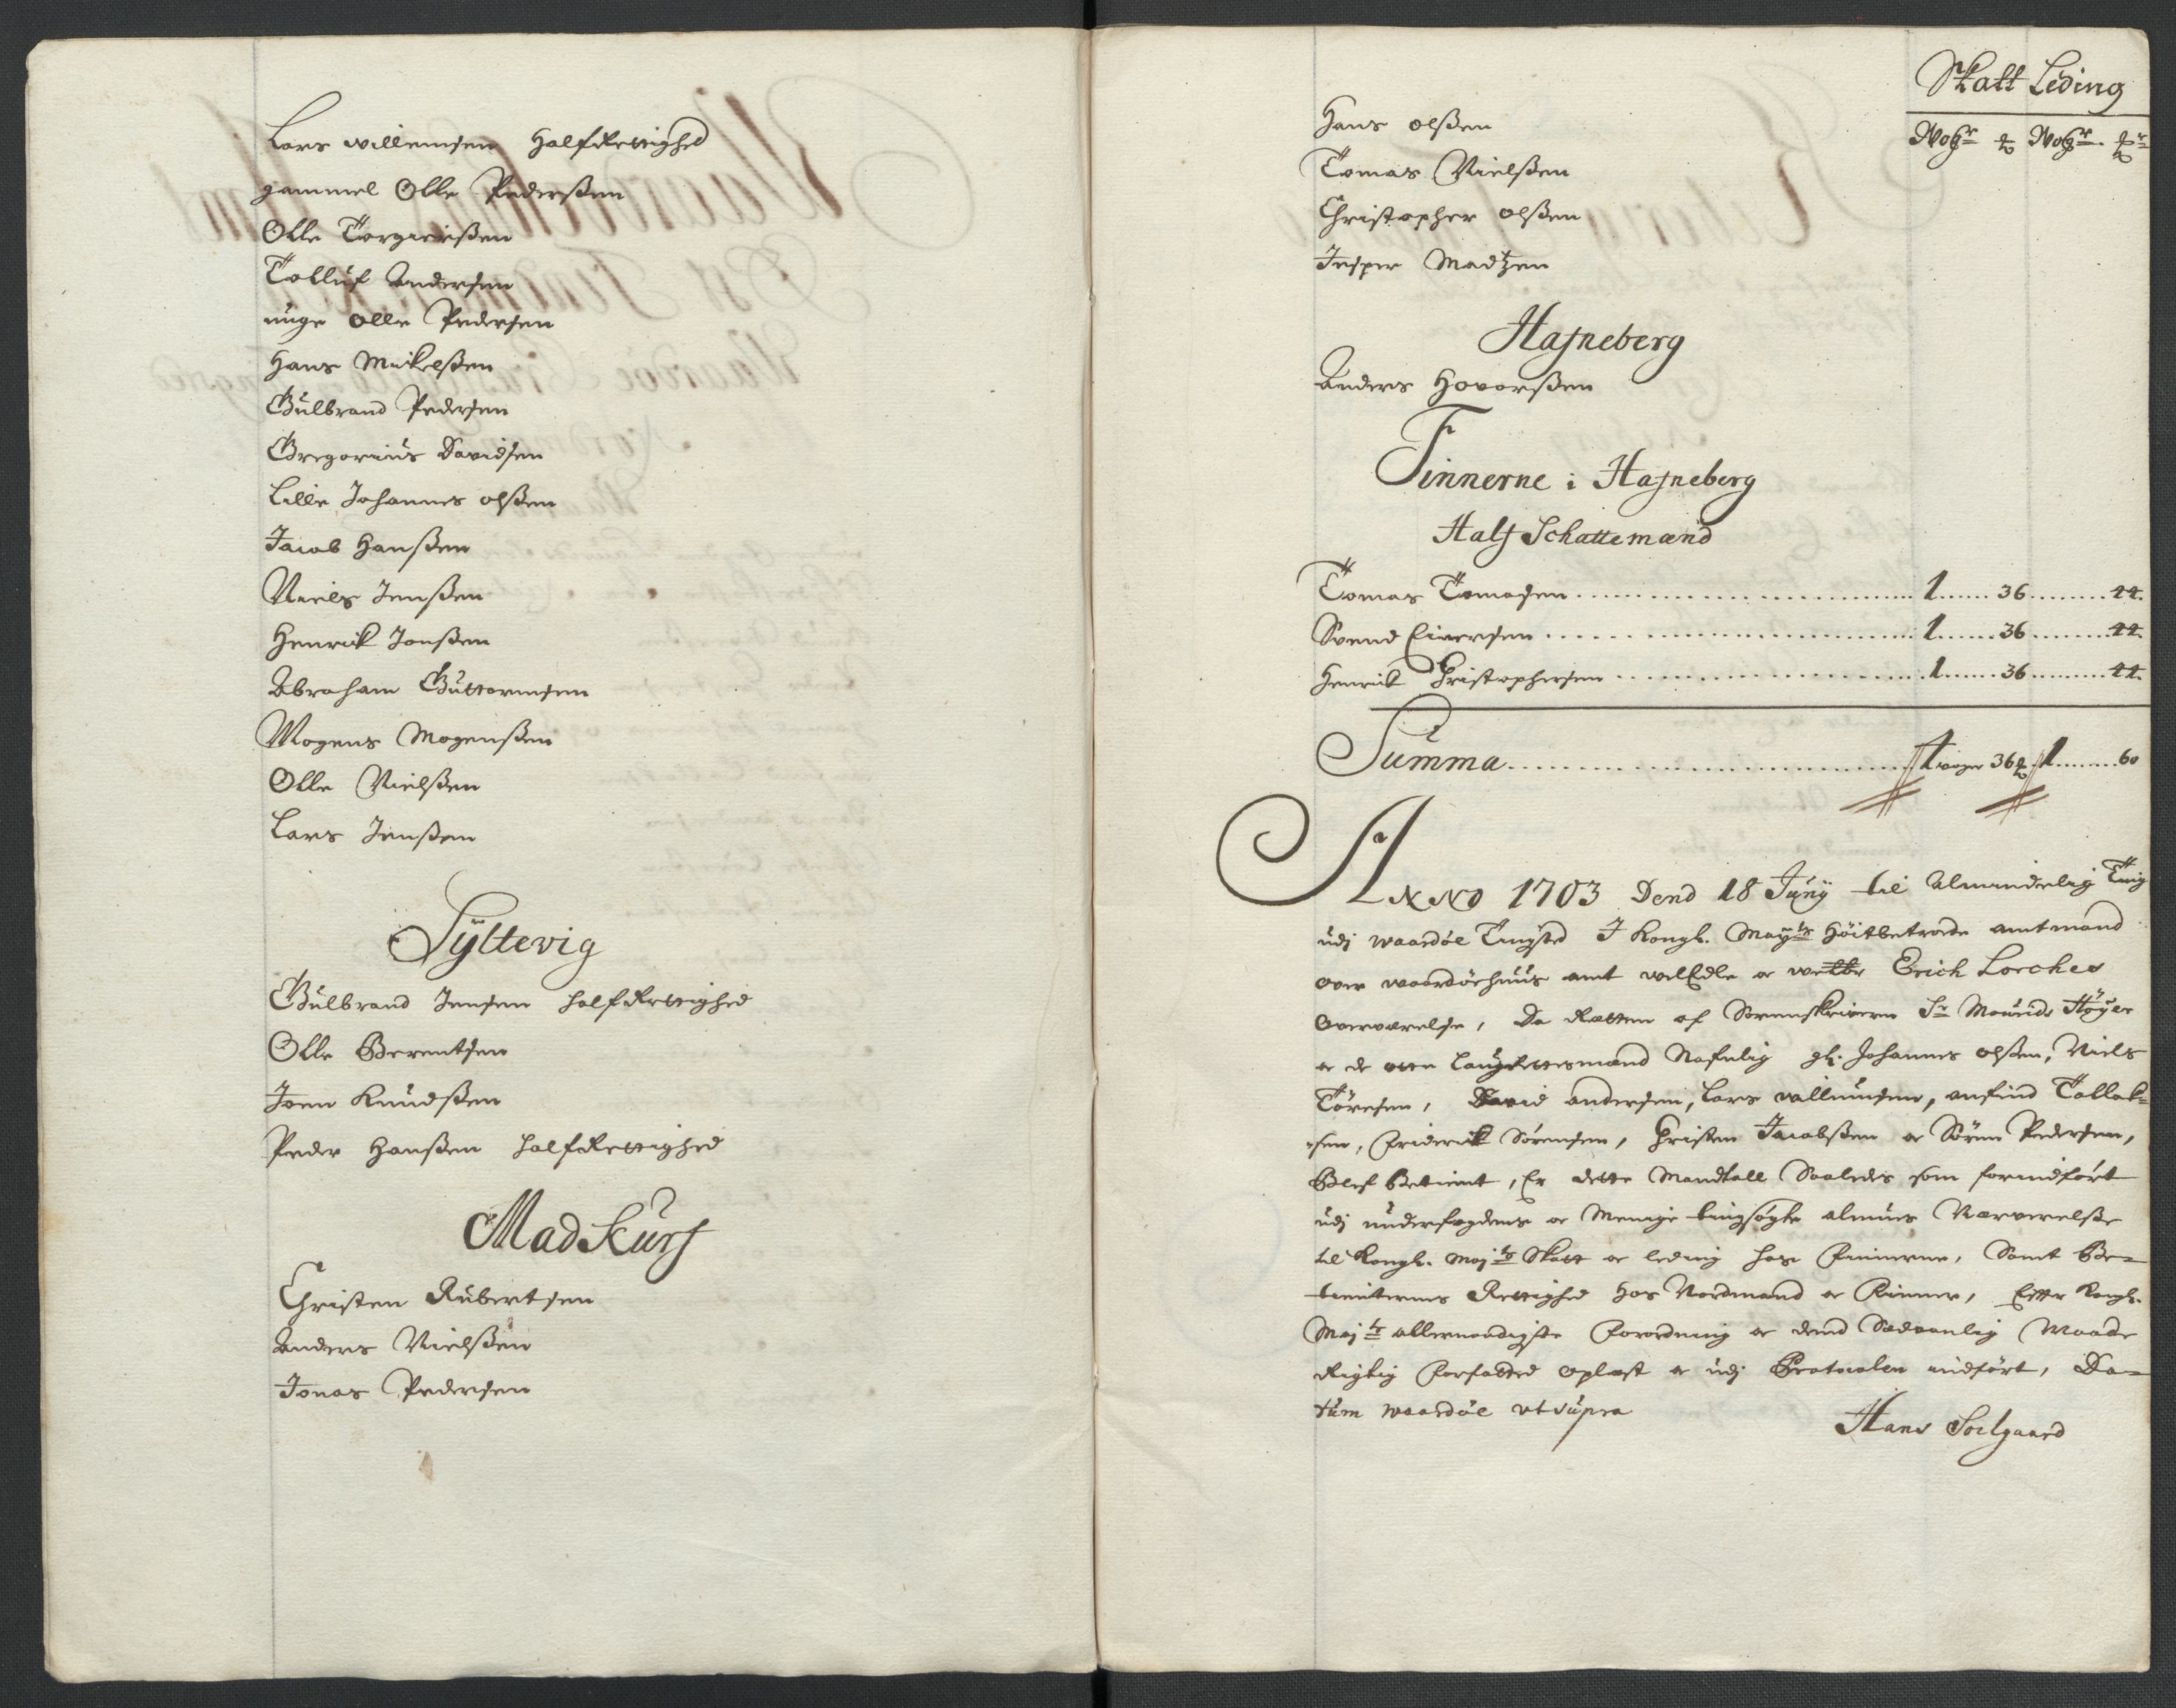 Lars willumsen Halfrettighed
gammel Olle Pederßen
Olle Torgierßen
Tolluf Andersen
unge olle Pedersen
Hans Mickelßen
Gulbrand Pedersen
Gregorius Davidsen
Lille Johannes olßen
Jacob Hanßen
Niels Jenßen
Henrick Jonßen
Abraham Guttormsen
Mogens Mogenßen
Olle Nielßen
Lars Jenßen
Syltevig
Gulbrand Jensen halfRettighed
Olle Berentsen
Joen Knudßen
Peder Hanßen halfRettighed
Madskurf
Christen Rubertsen
Anders Nielßen
Jonas Pedersen
Skatt Leding
Wogr ℔ Wogr. ℔r
Hans olßen
Tomas Nielßen
Christopher olßen
Jesper Madtzen
Hafneberg
Anders Hovorßen
Finnerne i Hafneberg
Half Schattemænd
Tomas Tomasen 1 36 44
Svend Eiversen 1 36 44
Henrick Christophersen 1 36 44
Summa 4 woger 36 ℔ 1 60
Anno 1703 Dend 18 Junÿ til Almindelig Ting
udj waardöe Tingsted J Kongl. Mayts Höitbetroede amtmand
over waardöehuus amt velEdle oc Erich Lorches
Overværelse, Da Retten af Sorenskriveren Sr Mourids Höyer
oc de otte Laugrettesmænd Nafnlig gl. Johannes olßen, Niels
Töresen, David andersen, Lars willumsen, anfind Tollak-
sen, Friderick Sörensen, Christen Jacobßen oc Sören Pedersen,
Blef Betient, Er dette Mandtall Saaledes som forindfört
udj underfogdens oc Menige tingsögte almues Nærverelße
til Kongl. Majts Skatt oc leding hos Finnerne, Samt Be-
tienternes Rettighed Hos Nordmænd oc Finner, Efter Kongl.
Majts allernaadigste Forordning oc dend Sædvanlig Maade
Rigtig Forfatted Oplæst oc udj Protocolen indfört, Da-
tum Waardöe ut supra
Hans Soelgaard